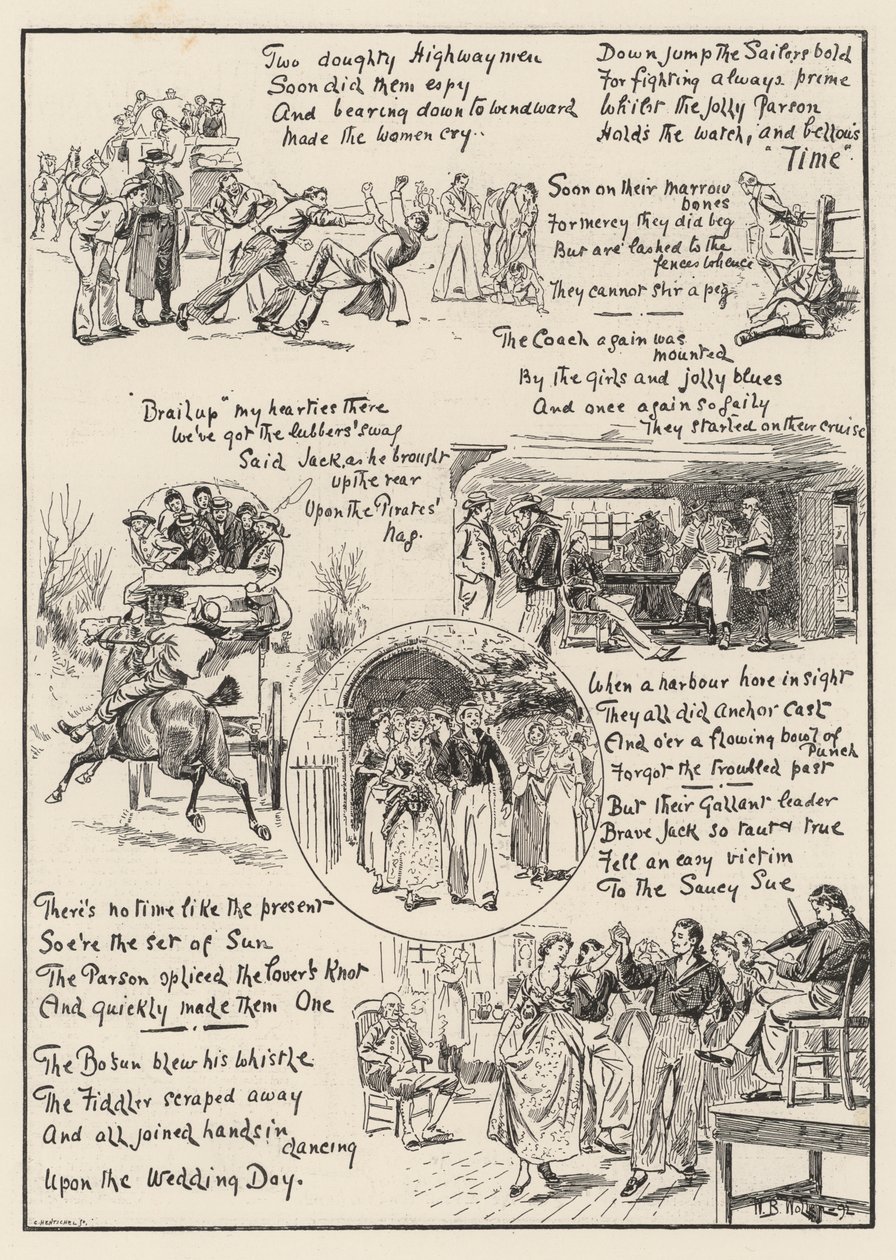 Two doughty Highwaymen
Soon did them espy
And bearing down to windward
Made the women cry..
Down jump the Sailors bold
For fighting always prime
Whilst the Jolly Parson
Holds the watch, and bellows
"Time".
Soon on their marrow
bones
For mercy they did beg
But are lashed to the
fences whence
They cannot stir a peg
The Coach again was
mounted
By the girls and jolly blues
And once again so gaily
They started on their cruise
"Brail up" my hearties there
We've got the lubbers' swag
Said Jack, as he brought
up the rear
Upon the Pirates'
Nag.
When a harbour hove in sight
They all did Anchor Cast
And o'er a flowing bowl of
Punch
Forgot the troubled past
But their Gallant leader
Brave Jack so taut & true
Fell an easy victim
To the Saucy Sue
There's no time like the present
So e're the set of Sun
The Parson spliced the lover's Knot
And quickly made them One
The Bo'sun blew his whistle
The Fiddler scraped away
And all joined hands in
dancing
Upon the Wedding Day.
C. HENTSCHEL Sc.
W. B. Wollen -92